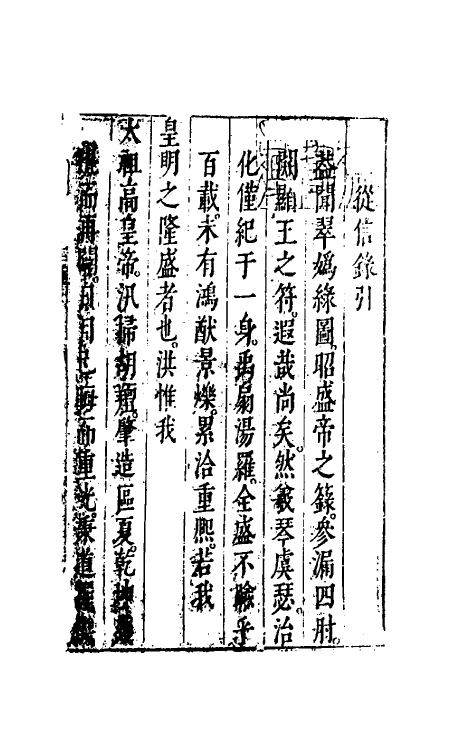 從信錄引
蓋聞翠媯綠圖。昭盛帝之籙。參漏四肘。
闕顯王之符。遐哉尚矣。然羲琴虞瑟。治
化僅紀于一身。禹扇湯羅。全盛不踰乎
百載。未有鴻猷景爍。累洽重熙。若我
皇明之隆盛者也。洪惟我
太祖高皇帝。汛掃胡羶。肇造區夏。乾坤
而再闢。日月已晦而重光。秉道